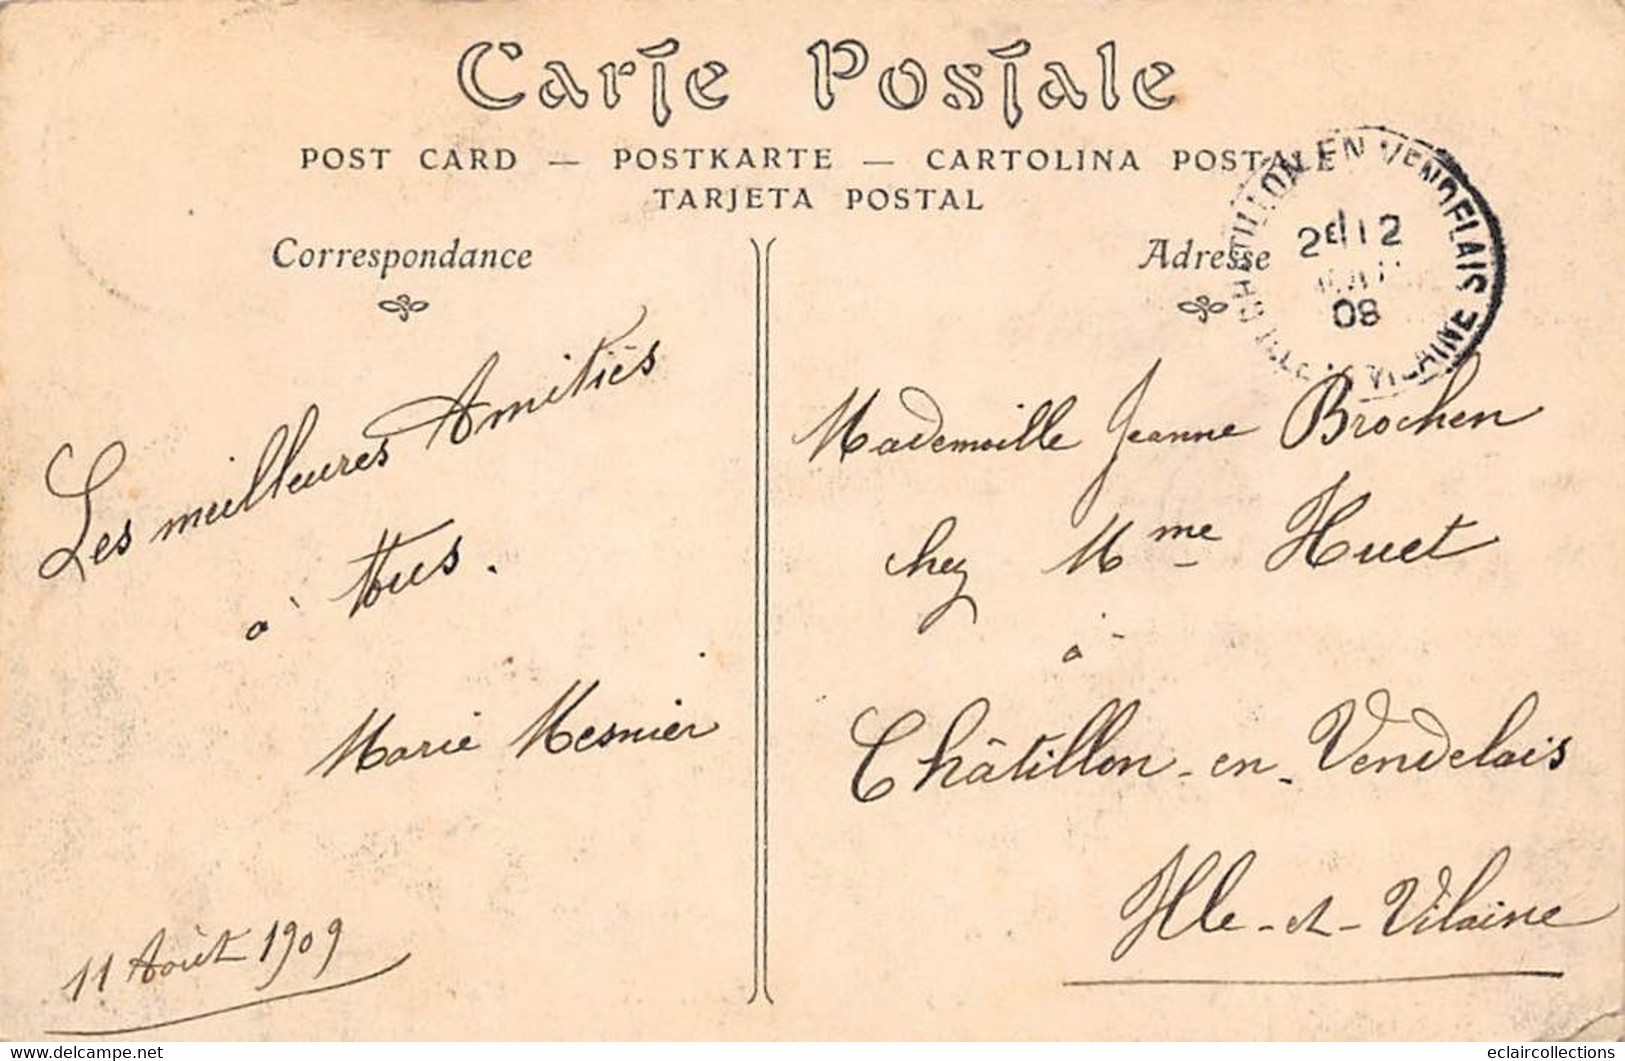 Carte Postale
POST CARD — POSTKARTE — CARTOLINA POSTALE
TARJETA POSTAL
Correspondance
Les meilleures Amitiés
à tous.
Marie Mesnier
11 Août 1909
Adresse
CHATILLON EN VENDELAIS
2E 12
ILLE VILAINE
Mademoille Jeanne Brochen
chez Mme Huet
à
Châtillon-en-Vendelais
Ille-et-Vilaine
www.delcampe.net
eclaircollections